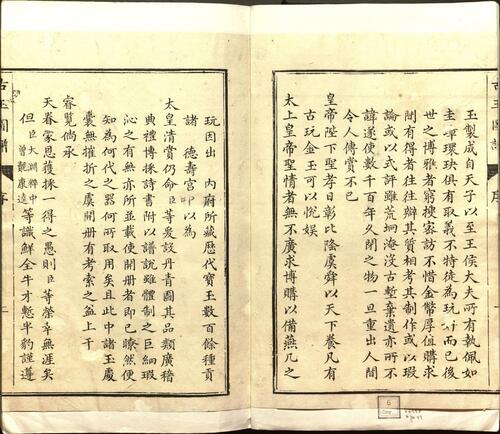 玉製成自天子以至王侯大夫所有執佩如
圭璋環玦俱有取義不特徒為玩好而已後
世之博雅者窮搜密訪不惜金幣厚值購求
間有得者往往辨其質相考其制作或以瑕
論或以式評雖荒坰海沒古塹棄遺亦所不
諱遂使數千百年久閉之物一旦重出人間
令人傳賞不已
皇帝陛下聖孝日彰比隆虞舜以天下養凡有
古玩金玉可以悅娛
太上皇帝聖情者無不廣求博購以備燕几之
玩因出 內府所藏歷代寶玉數百餘種貢
諸 德壽宮 以為
太皇清賞仍命臣等爰設丹青圖其品類廣稽
典禮博採詩書附以譜說雖體制之巨細瑕
沁之有無亦所並載使開冊者即已瞭然便
知為何代之器何所取用矣且此中諸玉處
囊無摧折之虞開冊有考索之益上干
睿覽倘承
天眷家恩獲採一得之愚則臣等榮幸無涯矣
但臣大淵粹中曾覿康遠等識鮮全牛才慙半豹謹遵
古玉圖譜 序 二
6